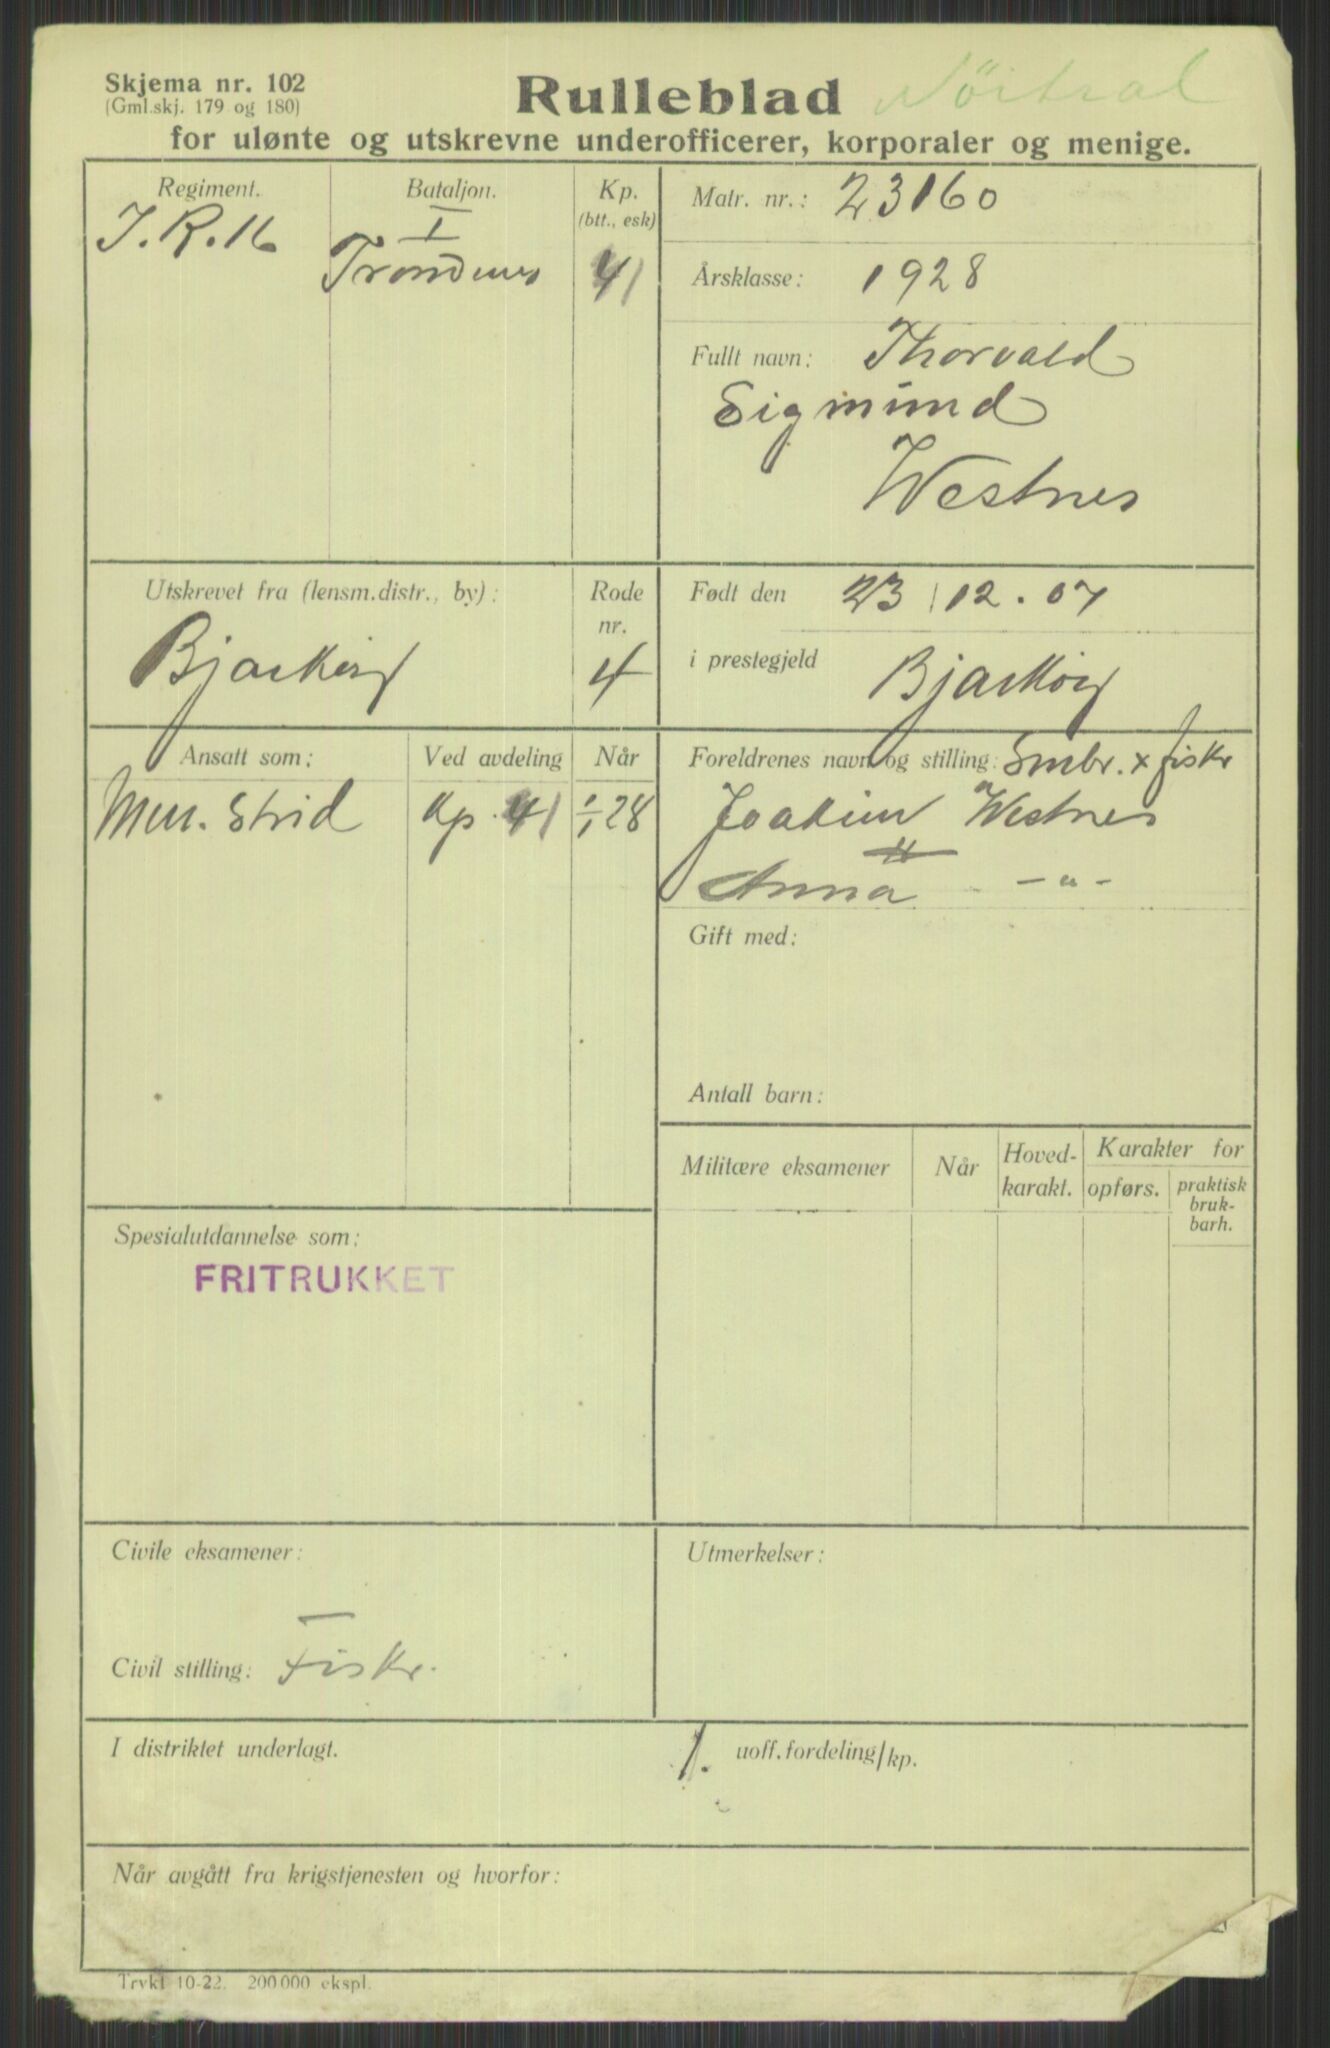 Skjema nr. 102
(Gml.skj. 179 og 180)
Rulleblad Nöitral
for ulønte og utskrevne underofficerer, korporaler og menige.
Regiment. Bataljon. Kp.
(btt., esk)
I.R.16 I
Trondenes 41
Matr. nr.: 23160
Årsklasse: 1928
Fullt navn: Thorvald
Sigmund
Westnes
Utskrevet fra (lensm.distr., by): Rode
nr.
Bjarköy 4
Født den 23/12.07
i prestegjeld Bjarköy
Ansatt som: Ved avdeling Når
Men. Strid Kp. 41 1/1 28
Foreldrenes navn og stilling: Smbr. x fiskr
Joakim Westnes
Anna -"-
Gift med:
Antall barn:
Militære eksamener Når Hoved-
karakt. Karakter for
opførs. praktisk
bruk-
barh.
Spesialutdannelse som:
FRITRUKKET
Civile eksamener:
—
Civil stilling: Fiskr.
Utmerkelser:
I distriktet underlagt. 1. uoff.fordeling/kp.
Når avgått fra krigstjenesten og hvorfor:
Trykt 10-22. 200000 ekspl.